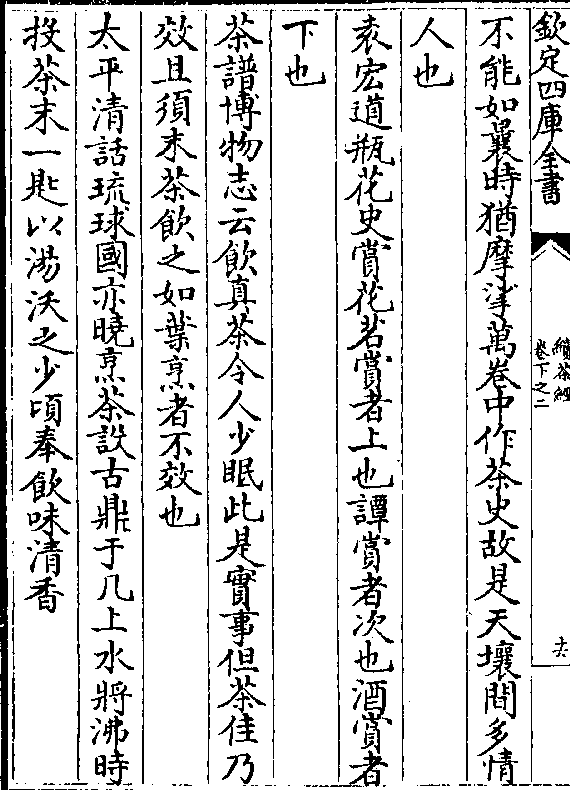 欽定四庫全書
續茶經
卷下之二
六
不能如曩時猶摩挲萬卷中作茶史故是天壤間多情
人也
袁宏道瓶花史賞花茗賞者上也譚賞者次也酒賞者
下也
茶譜博物志云飲真茶令人少眠此是實事但茶佳乃
效且須末茶飲之如葉烹者不效也
太平清話琉球國亦曉烹茶設古鼎于几上水將沸時
投茶末一匙以湯沃之少頃奉飲味清香